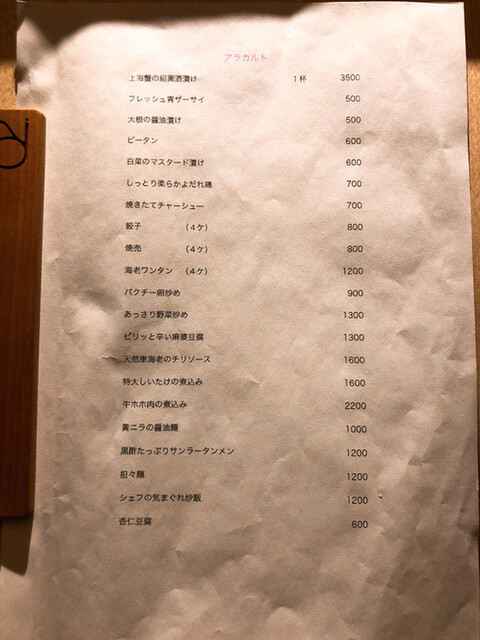 アラカルト
上海蟹の紹興酒漬け 1杯 3500
フレッシュ青ザーサイ 500
大根の醤油漬け 500
ピータン 600
白菜のマスタード漬け 600
しっとり柔らかよだれ鶏 700
焼きたてチャーシュー 700
餃子 (4ケ) 800
焼売 (4ケ) 800
海老ワンタン (4ケ) 1200
パクチー卵炒め 900
あっさり野菜炒め 1300
ピリッと辛い麻婆豆腐 1300
天然車海老のチリソース 1600
特大しいたけの煮込み 1600
牛ホホ肉の煮込み 2200
黄ニラの醤油麺 1000
黒酢たっぷりサンラータンメン 1200
担々麺 1200
シェフの気まぐれ炒飯 1200
杏仁豆腐 600